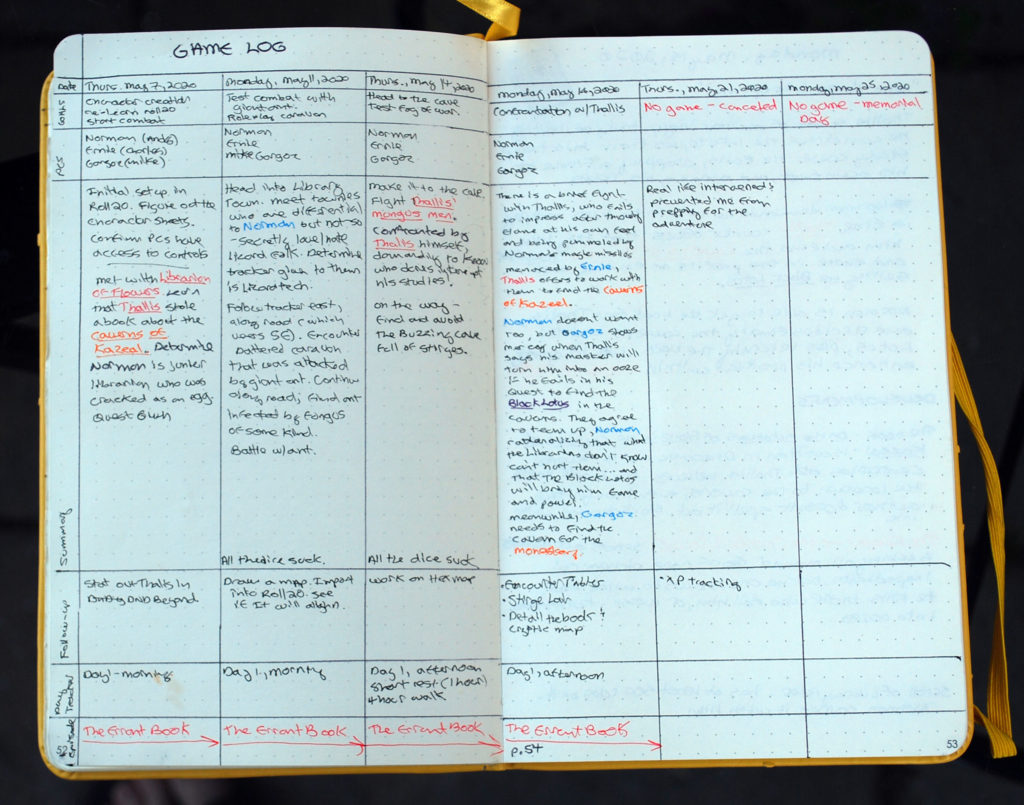 GAME LOG
Date
Thurs. May 7, 2020
Monday, May 11, 2020
Thurs., May 14, 2020
Monday, May 18, 2020
Thurs., May 21, 2020
Monday, May 25, 2020
Goals
Character creation
re-learn roll20
start combat
Test combat with
giant ant.
Roleplay caravan
Head to the cave
Test fog of war.
Confrontation w/Thallis
No game - canceled
No game - memorial
Day
PCs
Norman (Andé)
Ernie (Charles)
Gorgoz (Mike)
Norman
Ernie
Mike Gorgoz
Norman
Ernie
Gorgoz
Norman
Ernie
Gorgoz
Summary
Initial setup in
Roll20. Figure out the
character sheets.
Confirm PCs have
access to controls
met with Librarian
of Flowers. Learn
that Thallis stole
a book about the
Caverns of
Kazeel. Determine
Norman is junior
librarian who was
cracked as an egg.
Quest Bluh
Head into Library
Town. Meet townies
who are differential
to Norman but not so
- secretly love/hate
lizard folk. Determine
tracker given to them
is lizardtech.
Follow tracker east,
along road (which
veers SE). Encounter
battered caravan
that was attacked
by giant ant. Continue
along road; find ant
infected by fungus
of some kind.
Battle w/ant.
All the dice suck.
Make it to the cave
Fight Thallis'
mongus men.
Confronted by
Thallis himself,
demanding to know
who dares interrupt
his studies!
on the way -
find and avoid
the Buzzing Cave
full of stirges.
All the dice suck
There is a brief fight
with Thallis, who fails
to impress after throwing
flame at his own feet
and being pummeled by
Norman's magic missiles
menaced by Ernie,
Thallis offers to work with
them to find the Caverns
of Kazeel.
Norman doesn't want
too, but Gorgoz shows
mercy when Thallis
says his master will
turn him into an ooze
if he fails in his
Quest to find the
Black Lotus in the
Caverns. They agree
to team up, Norman
rationalizing that what
the Librarians don't know
can't hurt them... and
that the Black Lotus
will bring him fame
and power.
meanwhile, Gorgoz
needs to find the
Cavern for the
monastery.
Real life intervened &
prevented me from
prepping for the
adventure
Follow-up
Stat out Thallis in
DND Beyond
Draw a map. Import
into Roll20. See
if it will align.
work on Hex map
• Encounter Tables
• Stirge Lair
• Detail the book &
cryptic map
• XP tracking
Day Tracker
Day 1 - morning
Day 1, morning
Day 1, afternoon
short rest (1 hour)
4 hour walk
Day 1, afternoon
Episode
The Errant Book
The Errant Book
The Errant Book
The Errant Book
p.54
52
53